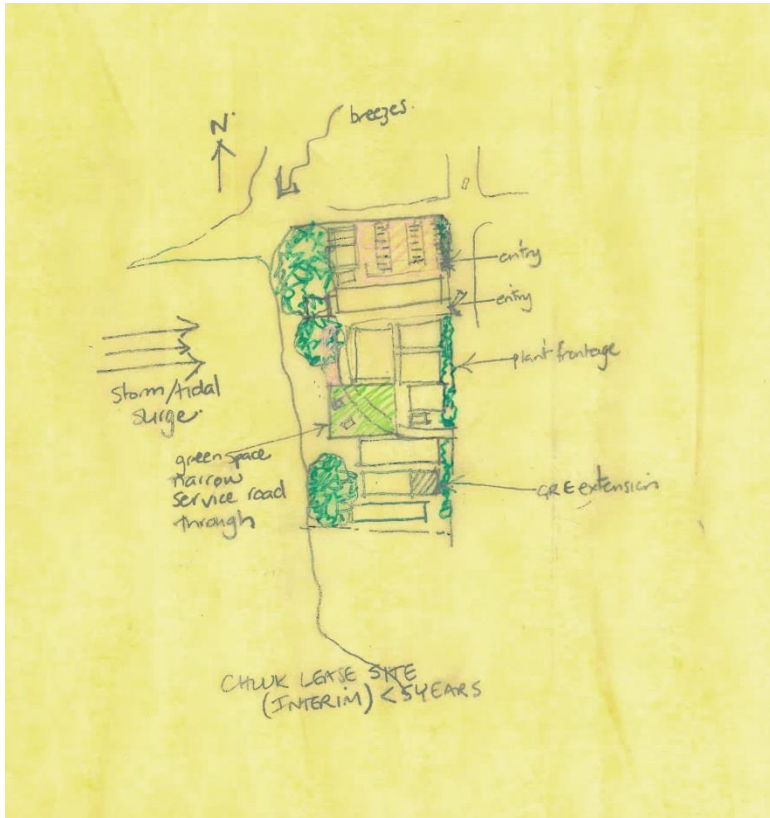 N.
breezes.
entry
entry
plant frontage
storm/tidal
surge.
green space
narrow
service road
through
GRE extension
CHUUK LEASE SITE
(INTERIM) < 5 YEARS